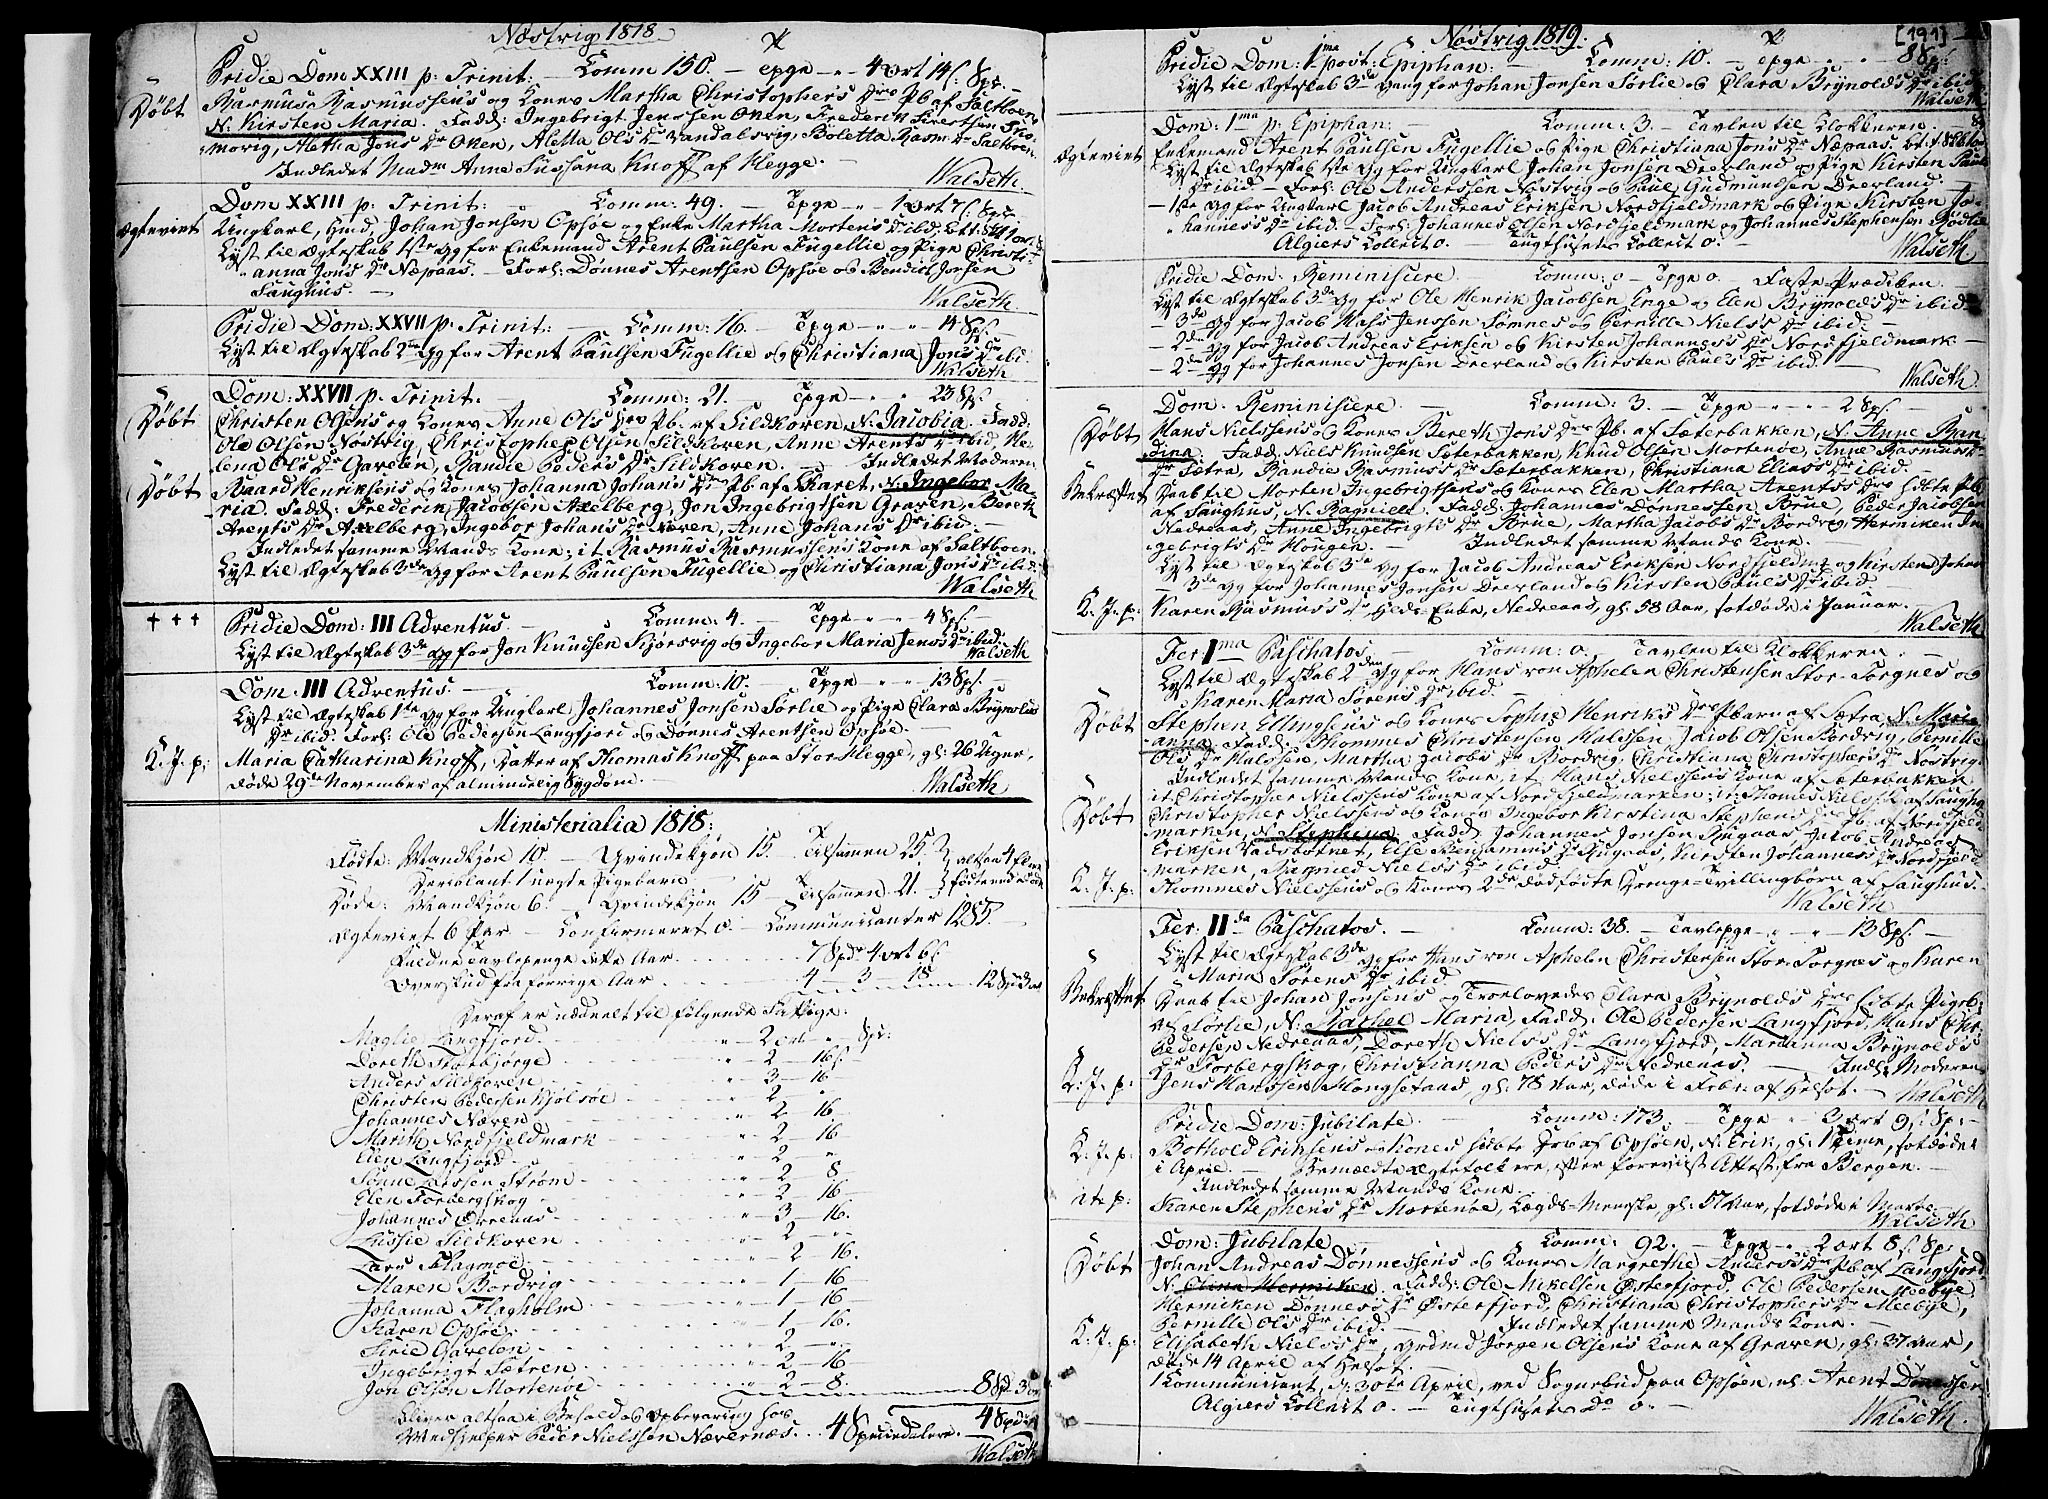 Næstvig 1818
Pridie Dom XXIII p: Trinit: — Comm 150. — tpge — 4 ort 14 s. Spc. —
Døbt
Rasmus Rasmussens og Kones Martha Christophers Drs Pb. af Saltboen
N: Kirsten Maria. Fadd: Ingebrigt Jenssen Oxen, Frederich Sivertsen
morvig, Aletha Jons Dr Oxen, Aletta Ols Dr Vandalsvig, Boletta Rasm: Dr Saltboen.
Indledet Madm Anne Sussana Knoff af Hegge. —
Walseth.
Dom XXIII p: Trinit: — Comm: 49. — Tpge — 1 ort 7 s. Spc —
Ægteviet
Ungkarl, Huusmd, Johan Jonsen Opsøe og Enke Martha Mortens Dr ibid.
Lyst til Ægteskab 1ste Gg for Enkemand Arent Paulsen Fugellie og Pige Christi-
anna Jons Dr Næpaas. — Forl: Dønnes Arentsen Opsøe og Bendict Jonsen
Sanghus. —
Walseth.
Pridie Dom: XXVII p: Trinit: — Comm: 16. — Tpge — 14 sp. —
Lyst til Ægteskab 2den Gg for Arent Paulsen Fugellie og Christiana Jons Dr ibid.
Walseth
Dom: XXVII p. Trinit: — Comm: 21. — Tpge — 23 sp. —
Døbt
Christen Olsens og Kones Anne Ols Drs Pb. af Sildkoren, N: Jacobia. Fadd:
Ole Olsen Nøstvig, Christopher Olsen Sildkoren, Anne Arents Dr ibid. He-
lena Ols Dr Garelen, Randie Peders Dr Sildkoren. Indledet Moderen
Døbt
Baard Henriksens og Kones Johanna Johans Drs Pb. af Skaret, N: Ingebor Ma-
ria. Fadd: Frederik Jacobsen Axelberg, Jon Ingebrigtsen Graven, Bereth
Arents Dr Axelberg, Ingebor Johans Dr Næren, Anne Johans Dr ibid. —
Indledet samme Mands Kone; it Rasmus Rasmussens Kone af Saltboen.
Lyst til Ægteskab 3de Gg for Arent Paulsen Fugellie og Christiana Jons Dr ibid.
Walseth
† † †
Pridie Dom: III Adventus. — Comm: 4. — Tpge — 4 sp. —
Lyst til Ægteskab 3de Gg for Jon Knudsen Kjørsvig og Ingebor Maria Jens Dr ibid.
Walseth
Dom: III Adventus. — Comm: 10. — Tpge — 13 sp. —
Lyst til Ægteskab 1ste Gg for Ungkarl Johannes Jonsen Sørlie og Pige Clara Brynolds
Dr ibid. Forl: Ole Pedersen Langfjord og Dønnes Arentsen Opsøe. —
K. J. p:
Maria Catharina Knoff, Datter af Thomas Knoff paa Stor Hegge, gl: 26 Uger,
døde 29de November af almindelig Sygdom. —
Walseth
Ministerialia 1818:
Fødte: Mandkjøn 10. — Qvindekjøn 15. — Tilsammen 25.
altsaa 4 flere
Deriblant 1 uægte Pigebarn —
fødte end døde
Døde: Mandkjøn 6. — Qvindekjøn 15 — Tilsammen 21.
Ægteviet 6 Par — Confirmeret 0. — Communicanter 1285. —
Faldne Tavlepenge dette Aar . . . . . 7 Spd 4 ort 6 s.
Overskud fra forrige Aar . . . . . 4 — 3 — 18 . . . . 12 Spd
Deraf er uddeelt til følgende Fattige:
Maglie Langfjord . . . . 2 ort „ Sp:
Doreth Storbjørge . . . . 2 — 16 s.
Anders Sildkoren . . . . 3 — 16
Christen Pedersen Kjølsøe . . . . 2 — „
Johannes Næren . . . . 2 — 16
Marith Nordfjeldmark . . . . 2 — 16
Elen Langfjord . . . . 2 — „
Sønne Larssen Strøm . . . . 2 — 8
Elen Torbergskog . . . . 2 — 16
Johannes Orrenas . . . . 3 — 16.
Lussie Sildkoren . . . . 2 — „
Lars Flagmoe . . . . 2 — 16.
Maren Bordvig . . . . 1 — 16
Johanna Flagholm . . . . 1 — 16
Karen Opsøe . . . . 1 — 16.
Sirie Garelen . . . . 2 — „
Ingebrigt Sætren . . . . 2 — 16
Jon Olsen Mortenøe . . . . 2 — 8.
8 Spd 3 ort
Bliver altsaa i Behold og Opbevaring hos
4 Spd
Medhjelper Peder Nielssen Nævernes . . . 4 Speciedaler. —
Walseth
Nøstvig 1819.
[191]
Pridie Dom: 1ma post: Epiphan: — Comm: 10. — tpge — 8 sp.
Lyst til Ægteskab 3de Gang for Johan Jonsen Sørlie og Clara Brynolds Dr ibid.
Walseth
Dom: 1ma p: Epiphan: — Comm: 3. — Tavlen til Klokkeren.
Ægteviet
Enkemand Arent Paulsen Fugellie og Pige Christiana Jons Dr Næpaas.
Lyst til Ægteskab 1ste Gg for Ungkarl Johan Jonsen Dverland og Pige Kirsten Pauls
Dr ibid — Forl: Ole Anderssen Nøstvig og Paul Gudmundsen Dverland. —
— 1ste Gg for Ungkarl Jacob Andreas Eriksen Nordfjeldmark og Pige Kirsten Jo-
hannes's Dr ibid. — Forl: Johannes Olsen Nordfjeldmark og Johannes Stephensen Rødlie
Algiers Collect 0. — Tugthusets Collect 0. —
Walseth.
Pridie Dom: Reminiscere — Comm: 0 — Tpge 0. — Faste-Prædiken
Lyst til Ægteskab 3de Gg for Ole Henrik Jacobsen Enge og Elen Brynolds Dr ibid.
— 3de Gg for Jacob Mass Jenssen Sømnes og Pernille Niels's Dr ibid. —
— 2den Gg for Jacob Andreas Eriksen og Kirsten Johannes's Dr Nordfjeldmark —
— 2de Gg for Johannes Jonsen Dverland og Kirsten Paul's Dr ibid. —
Walseth.
Dom: Reminiscere. — Comm: 3. — Tpge — 2 sp. —
Døbt
Hans Nielssens og Kones Bereth Jons Drs Pb. af Sæterbakken, N: Anne Ran-
dina. Fadd: Niels Knudsen Sæterbakken, Knud Olsen Mortenøe, Anne Rasmus's
Dr Sætra, Randie Rasmus's Dr Sæterbakken, Christiana Elias's Dr ibid. —
Bekræftet
Daab til Morten Ingebrigtsens og Kones Elen Martha Arents's Drs ægte Pb.
af Sanghus, N: Ragnild. Fadd: Johannes Dønnessen Brue, Peder Jacobsen
Nedreaas, Anne Ingebrigts Dr Brue, Martha Jacobs Dr Bordvig, Hermiken In-
gebrigts Dr Hougen. — Indledet samme Mands Kone. —
Lyst til Ægteskab 3de Gg for Jacob Andreas Eriksen Nordfjeldmark og Kirsten Johan
— 3de Gg for Johannes Jonsen Dverland og Kirsten Pauls Dr ibid. —
K. J. p:
Karen Rasmus's Dr, Enke, Nedreaas, gl: 58 Aar, sotdøde i Januar.
Walseth
Fer: 1ma Paschatos. — Comm: 0. — Tavlen til Klokkeren. —
Lyst til Ægteskab 2den Gg for Hans von Aphelen Christensen Stor-Torgnes og
Karen Maria Sørens Dr ibid. —
Døbt
Stephen Ellingsens og Kones Sophie Henriks Drs Pbarn af Sætra, N: Maria-
anna. Fadd: Thommes Christensen Halssen, Jacob Olsen Bordvig, Pernille
Ols Dr Halssen, Martha Jacobs Dr Bordvig, Christiana Christophers Dr Nøstvig.
Indledet samme Mands Kone, it Hans Nielssens Kone af Sæterbakken,
it Christopher Nielssens Kone af Nordfjeldmarken; it: Thomes Niels's K: af Sanghus
Døbt
Christopher Nielssens og Kones Ingebor Kirstina Stephens Drs Pb. af Nordfjeld-
marken, N: Stephena. Fadd: Johannes Jonsen Rugaas, Jacob Andreas
Eriksen Vadsbotnet, Else Benjamins Dr Rugaas, Kirsten Johannes's Dr Nordfjeld-
marken, Ragnild Niels's Dr ibid. —
K. J. p:
Thommes Nielssens og Kones 2de dødfødte Drenge-Tvillingbørn af Sanghus.
Walseth
Fer: IIda Paschatos. — Comm: 38. — Tavlepge — 13 sp. —
Lyst til Ægteskab 3de Gg for Hans von Aphelen Christensen Stor-Torgnes og Karen
Maria Sørens Dr ibid. —
Bekræftet
Daab til Johan Jonsens og Troelovedes Clara Brynolds Drs ægte Pigeb:
af Sørlie, N: Mathel Maria, Fadd: Ole Pedersen Langfjord, Hans Chr:
Pedersen Nedrenaas, Doreth Niels's Dr Langfjord, Marianna Brynolds
Dr Torbergskog, Christianna Peders Dr Nedrenas. — Indl: Moderen
K. J. p:
Jens Hanssen Mongsetaas, gl: 78 Aar, døde i Febr: af Helsot. —
Walseth
Pridie Dom: Jubilate. — Comm: 173. — Tpge — 3 ort 9 s. Sp: —
K. J. p:
Bothold Eriksens og Kones ægte Drb: af Opsøen, N: Erik, gl: 1 Time, sotdøde
i April. — Bemeldte Ægtefolk ere, efter foreviist Attest, fra Bergen. —
Indledet samme Mands Kone.
it. p:
Karen Stephens Dr Mortenøe, Lægds-Menneske, gl: 57 Aar, sotdøde i Marts.
Walseth
Dom: Jubilate — Comm: 92. — Tpge — 2 ort 8 s. Sp:
Døbt
Johan Andreas Dønnessens og Kones Margrethe Anders's Drs Pb. af Langfjord
N: Elina Hermiken. Fadd: Ole Mikelsen Østerfjord, Ole Pedersen Meebye
Hermiken Dønnes's Dr Østerfjord, Christiana Christophers Dr Meebye,
Pernille Ols Dr ibid. — Indledet samme Mands Kone. —
K. J. p:
Elisabeth Niels's Dr, Jørgen Olsens Kone af Graven, gl: 37 Aar,
døde 14 April af Helsot. —
1 Communicant, d: 30te April, ved Sognebud paa Opsøen, nl: Arent Dønnessen
Algiers Collect 0. — Tugthusets Do 0. —
Walseth.